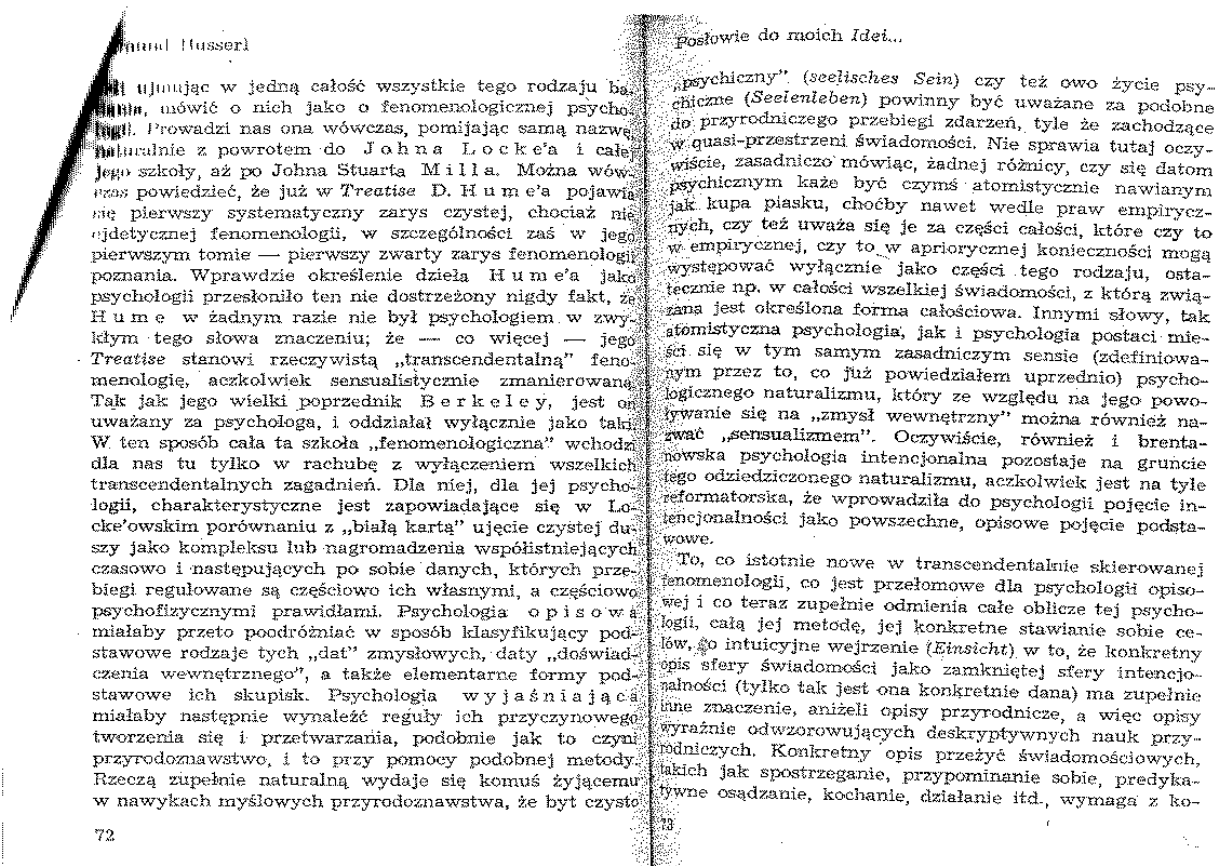 mund Husserl
ujmując w jedną całość wszystkie tego rodzaju ba-
mówić o nich jako o fenomenologicznej psycho-
Prowadzi nas ona wówczas, pomijając samą nazwę,
naturalnie z powrotem do Johna Locke'a i całej
jego szkoły, aż po Johna Stuarta Milla. Można wów-
czas powiedzieć, że już w Treatise D. Hume'a pojawia
się pierwszy systematyczny zarys czystej, chociaż nie
ejdetycznej fenomenologii, w szczególności zaś w jego
pierwszym tomie — pierwszy zwarty zarys fenomenologii
poznania. Wprawdzie określenie dzieła Hume'a jako
psychologii przesłoniło ten nie dostrzeżony nigdy fakt, że
Hume w żadnym razie nie był psychologiem w zwy-
kłym tego słowa znaczeniu; że — co więcej — jego
Treatise stanowi rzeczywistą „transcendentalną” feno-
menologię, aczkolwiek sensualistycznie zmanierowaną.
Tak jak jego wielki poprzednik Berkeley, jest on
uważany za psychologa, i oddziałał wyłącznie jako taki.
W ten sposób cała ta szkoła „fenomenologiczna” wchodzi
dla nas tu tylko w rachubę z wyłączeniem wszelkich
transcendentalnych zagadnień. Dla niej, dla jej psycho-
logii, charakterystyczne jest zapowiadające się w Lo-
cke'owskim porównaniu z „białą kartą” ujęcie czystej du-
szy jako kompleksu lub nagromadzenia współistniejących
czasowo i następujących po sobie danych, których prze-
biegi regulowane są częściowo ich własnymi, a częściowo
psychofizycznymi prawidłami. Psychologia opisowa
miałaby przeto poodróżniać w sposób klasyfikujący pod-
stawowe rodzaje tych „dat” zmysłowych, daty „doświad-
czenia wewnętrznego”, a także elementarne formy pod-
stawowe ich skupisk. Psychologia wyjaśniająca
miałaby następnie wynaleźć reguły ich przyczynowego
tworzenia się i przetwarzania, podobnie jak to czyni
przyrodoznawstwo, i to przy pomocy podobnej metody.
Rzeczą zupełnie naturalną wydaje się komuś żyjącemu
w nawykach myślowych przyrodoznawstwa, że byt czysto
72
Posłowie do moich Idei...
„psychiczny” (seelisches Sein) czy też owo życie psy-
chiczne (Seelenleben) powinny być uważane za podobne
do przyrodniczego przebiegi zdarzeń, tyle że zachodzące
w quasi-przestrzeni świadomości. Nie sprawia tutaj oczy-
wiście, zasadniczo mówiąc, żadnej różnicy, czy się datom
psychicznym każe być czymś atomistycznie nawianym
jak kupa piasku, choćby nawet wedle praw empirycz-
nych, czy też uważa się je za części całości, które czy to
w empirycznej, czy to w apriorycznej konieczności mogą
występować wyłącznie jako części tego rodzaju, osta-
tecznie np. w całości wszelkiej świadomości, z którą zwią-
zana jest określona forma całościowa. Innymi słowy, tak
atomistyczna psychologia, jak i psychologia postaci mie-
ści się w tym samym zasadniczym sensie (zdefiniowa-
nym przez to, co już powiedziałem uprzednio) psycho-
logicznego naturalizmu, który ze względu na jego powo-
ływanie się na „zmysł wewnętrzny” można również na-
zwać „sensualizmem”. Oczywiście, również i brenta-
nowska psychologia intencjonalna pozostaje na gruncie
tego odziedziczonego naturalizmu, aczkolwiek jest na tyle
reformatorska, że wprowadziła do psychologii pojęcie in-
tencjonalności jako powszechne, opisowe pojęcie podsta-
wowe.
To, co istotnie nowe w transcendentalnie skierowanej
fenomenologii, co jest przełomowe dla psychologii opiso-
wej i co teraz zupełnie odmienia całe oblicze tej psycho-
logii, całą jej metodę, jej konkretne stawianie sobie ce-
lów, to intuicyjne wejrzenie (Einsicht) w to, że konkretny
opis sfery świadomości jako zamkniętej sfery intencjo-
nalności (tylko tak jest ona konkretnie dana) ma zupełnie
inne znaczenie, aniżeli opisy przyrodnicze, a więc opisy
wyraźnie odwzorowujących deskryptywnych nauk przy-
rodniczych. Konkretny opis przeżyć świadomościowych,
takich jak spostrzeganie, przypominanie sobie, predyka-
tywne osądzanie, kochanie, działanie itd., wymaga z ko-
73